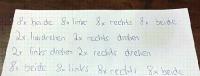 8x beide 8x links 8x rechts 8x beide
2x drehen 2x rechts drehen
2x links drehen 2x rechts drehen
8x beide 8x links 8x rechts 8x beide